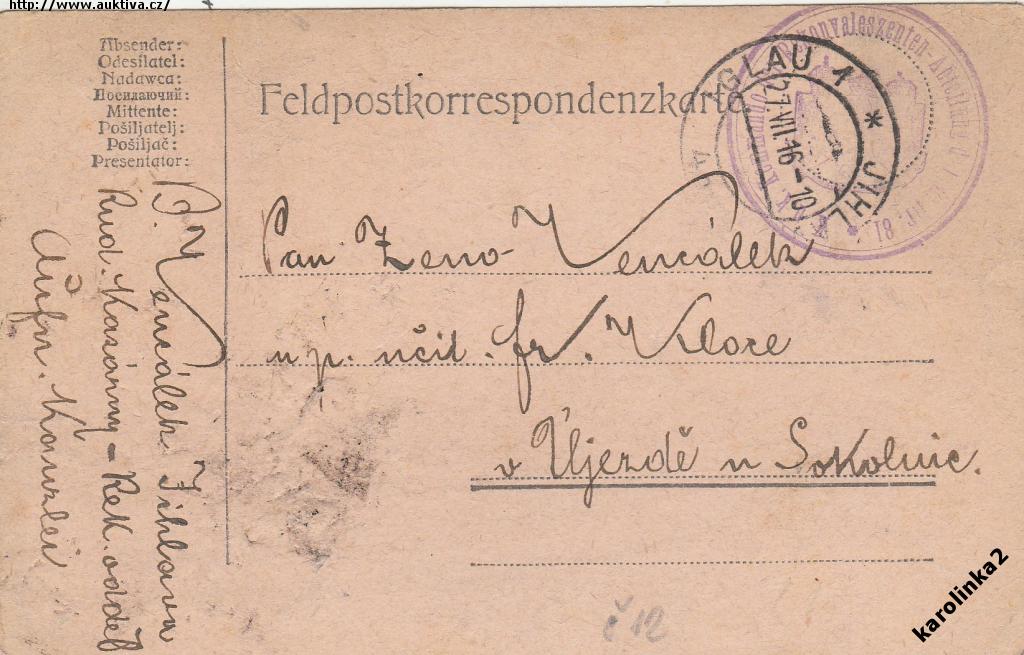 http://www.auktiva.cz/
Absender:
Odesílatel:
Nadawca:
Посилаючий:
Mittente:
Pošiljatelj:
Pošiljač:
Presentator:
Feldpostkorrespondenzkarte
IGLAU 1 * JIHL
27.VII.16-10
Rekonvaleszenten-Abteilung
Pan Zeno Vencálek
u p. učit. fr. Kloze
v Újezdě u Sokolnic.
Vencálek Jihlava
Rud. Kasárny - Rek. odděl
Aufn. Kanzlei
č 12
karolinka2